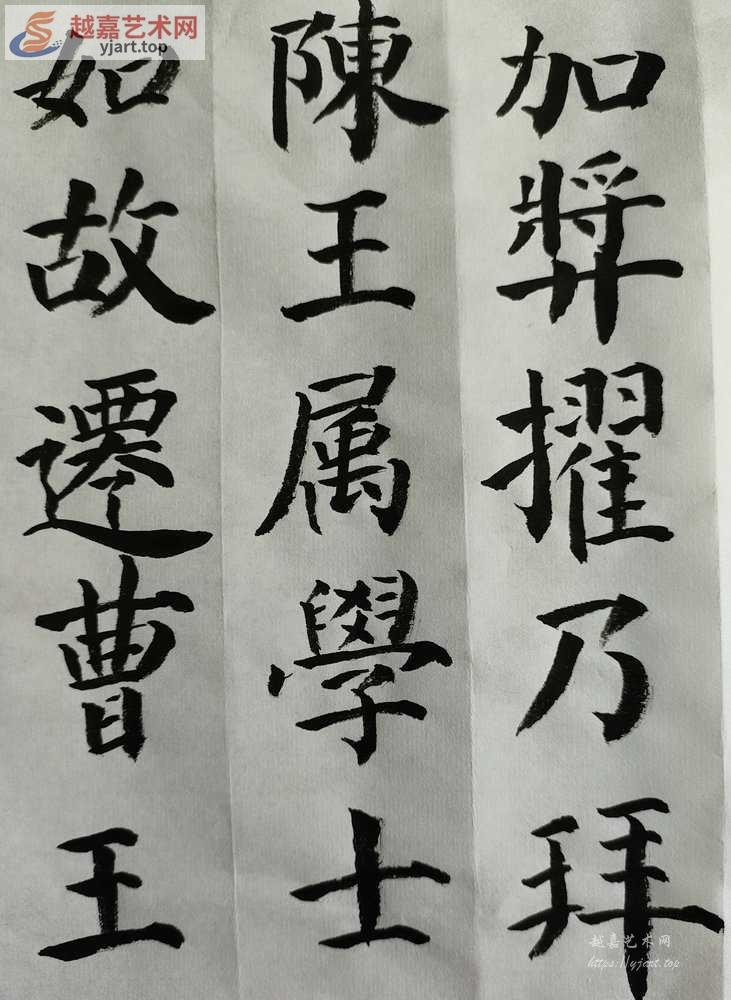 越嘉艺术网
yjart.top
加奬擢乃拜
陳王属學士
如故遷曹王
越嘉艺术网
https://yjart.top